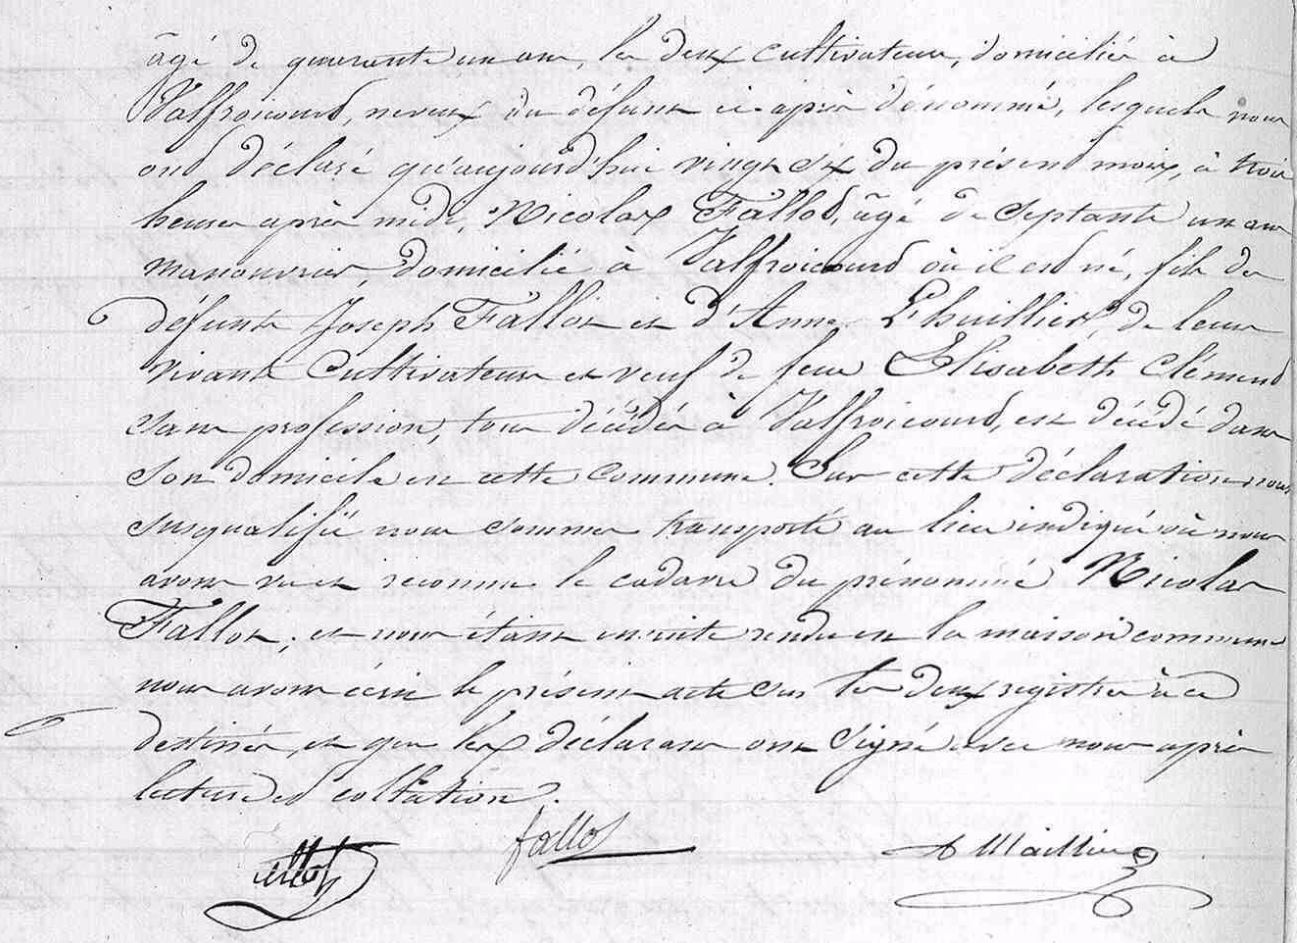 âgé de quarante un ans, les deux cultivateurs, domiciliés à
Valfroicourt, neveux du défunt ci-après dénommé, lesquels nous
ont déclaré qu'aujourd'hui vingt six du présent mois, à trois
heures après midi, Nicolas Fallot, âgé de septante un ans
manouvrier, domicilié à Valfroicourt où il est né, fils de
défunts Joseph Fallot et d'Anne L'huillier, de leur
vivant Cultivateurs et veuf de feue Elisabeth Clément
sans profession, tous décédés à Valfroicourt, est décédé dans
son domicile en cette commune. Sur cette déclaration nous
susqualifié nous sommes transporté au lieu indiqué où nous
avons vu et reconnu le cadavre du prénommé Nicolas
Fallot, et nous étant ensuite rendu en la maison commune
nous avons écrit le présent acte sur les deux registres à ce
destinés, et que les déclarans ont signé avec nous après
lecture et collation.
fallot